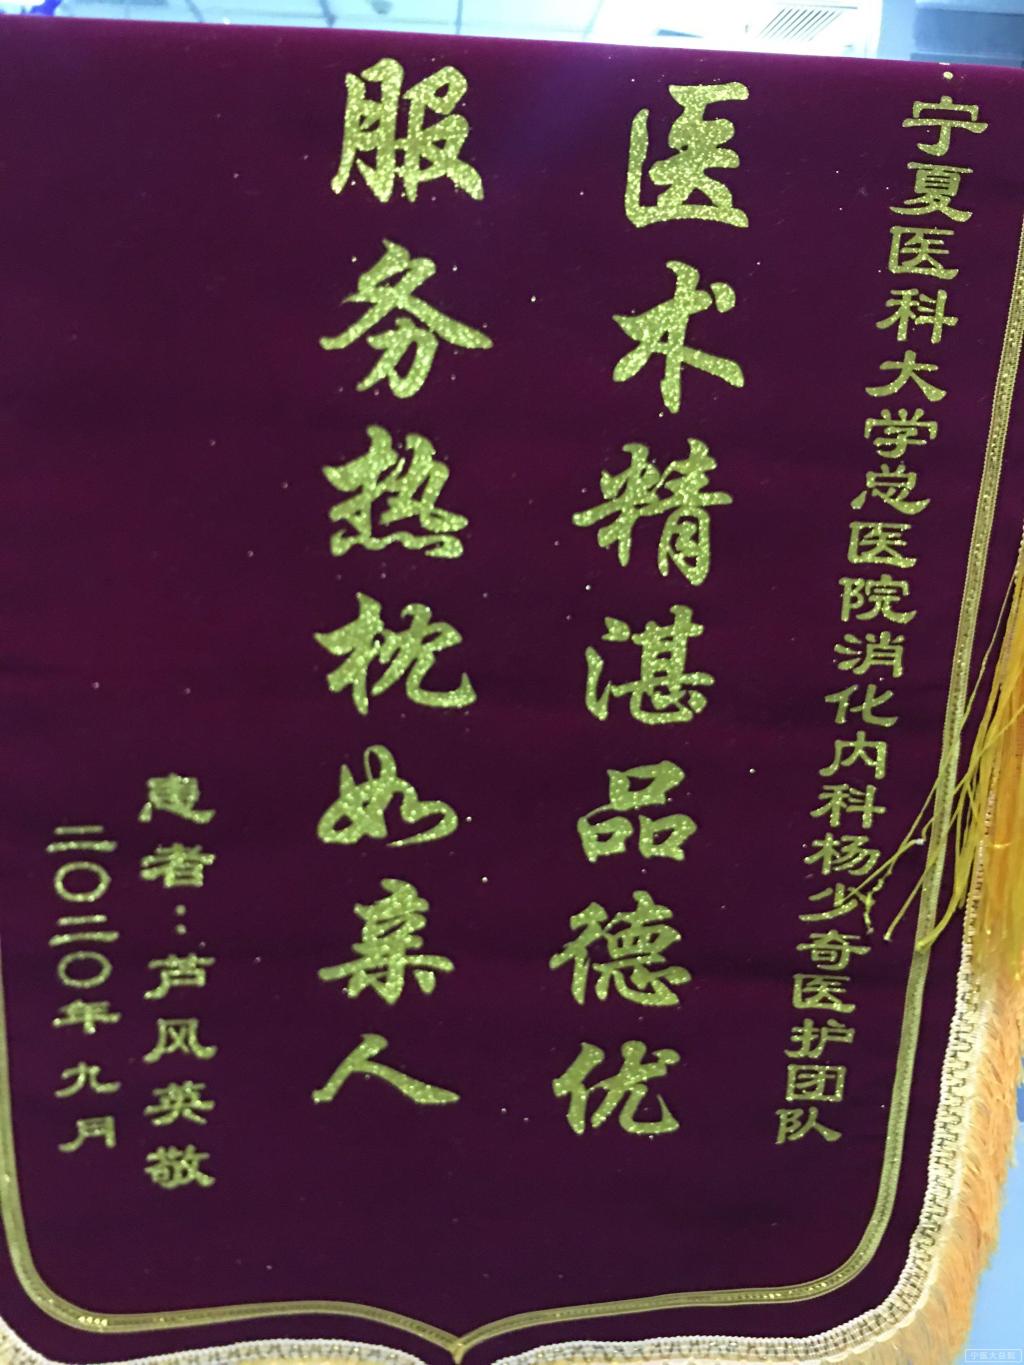 宁夏医科大学总医院消化内科杨少奇医护团队
医术精湛品德优
服务热枕如亲人
患者:芦风英敬
二〇二〇年九月
宁医大总院